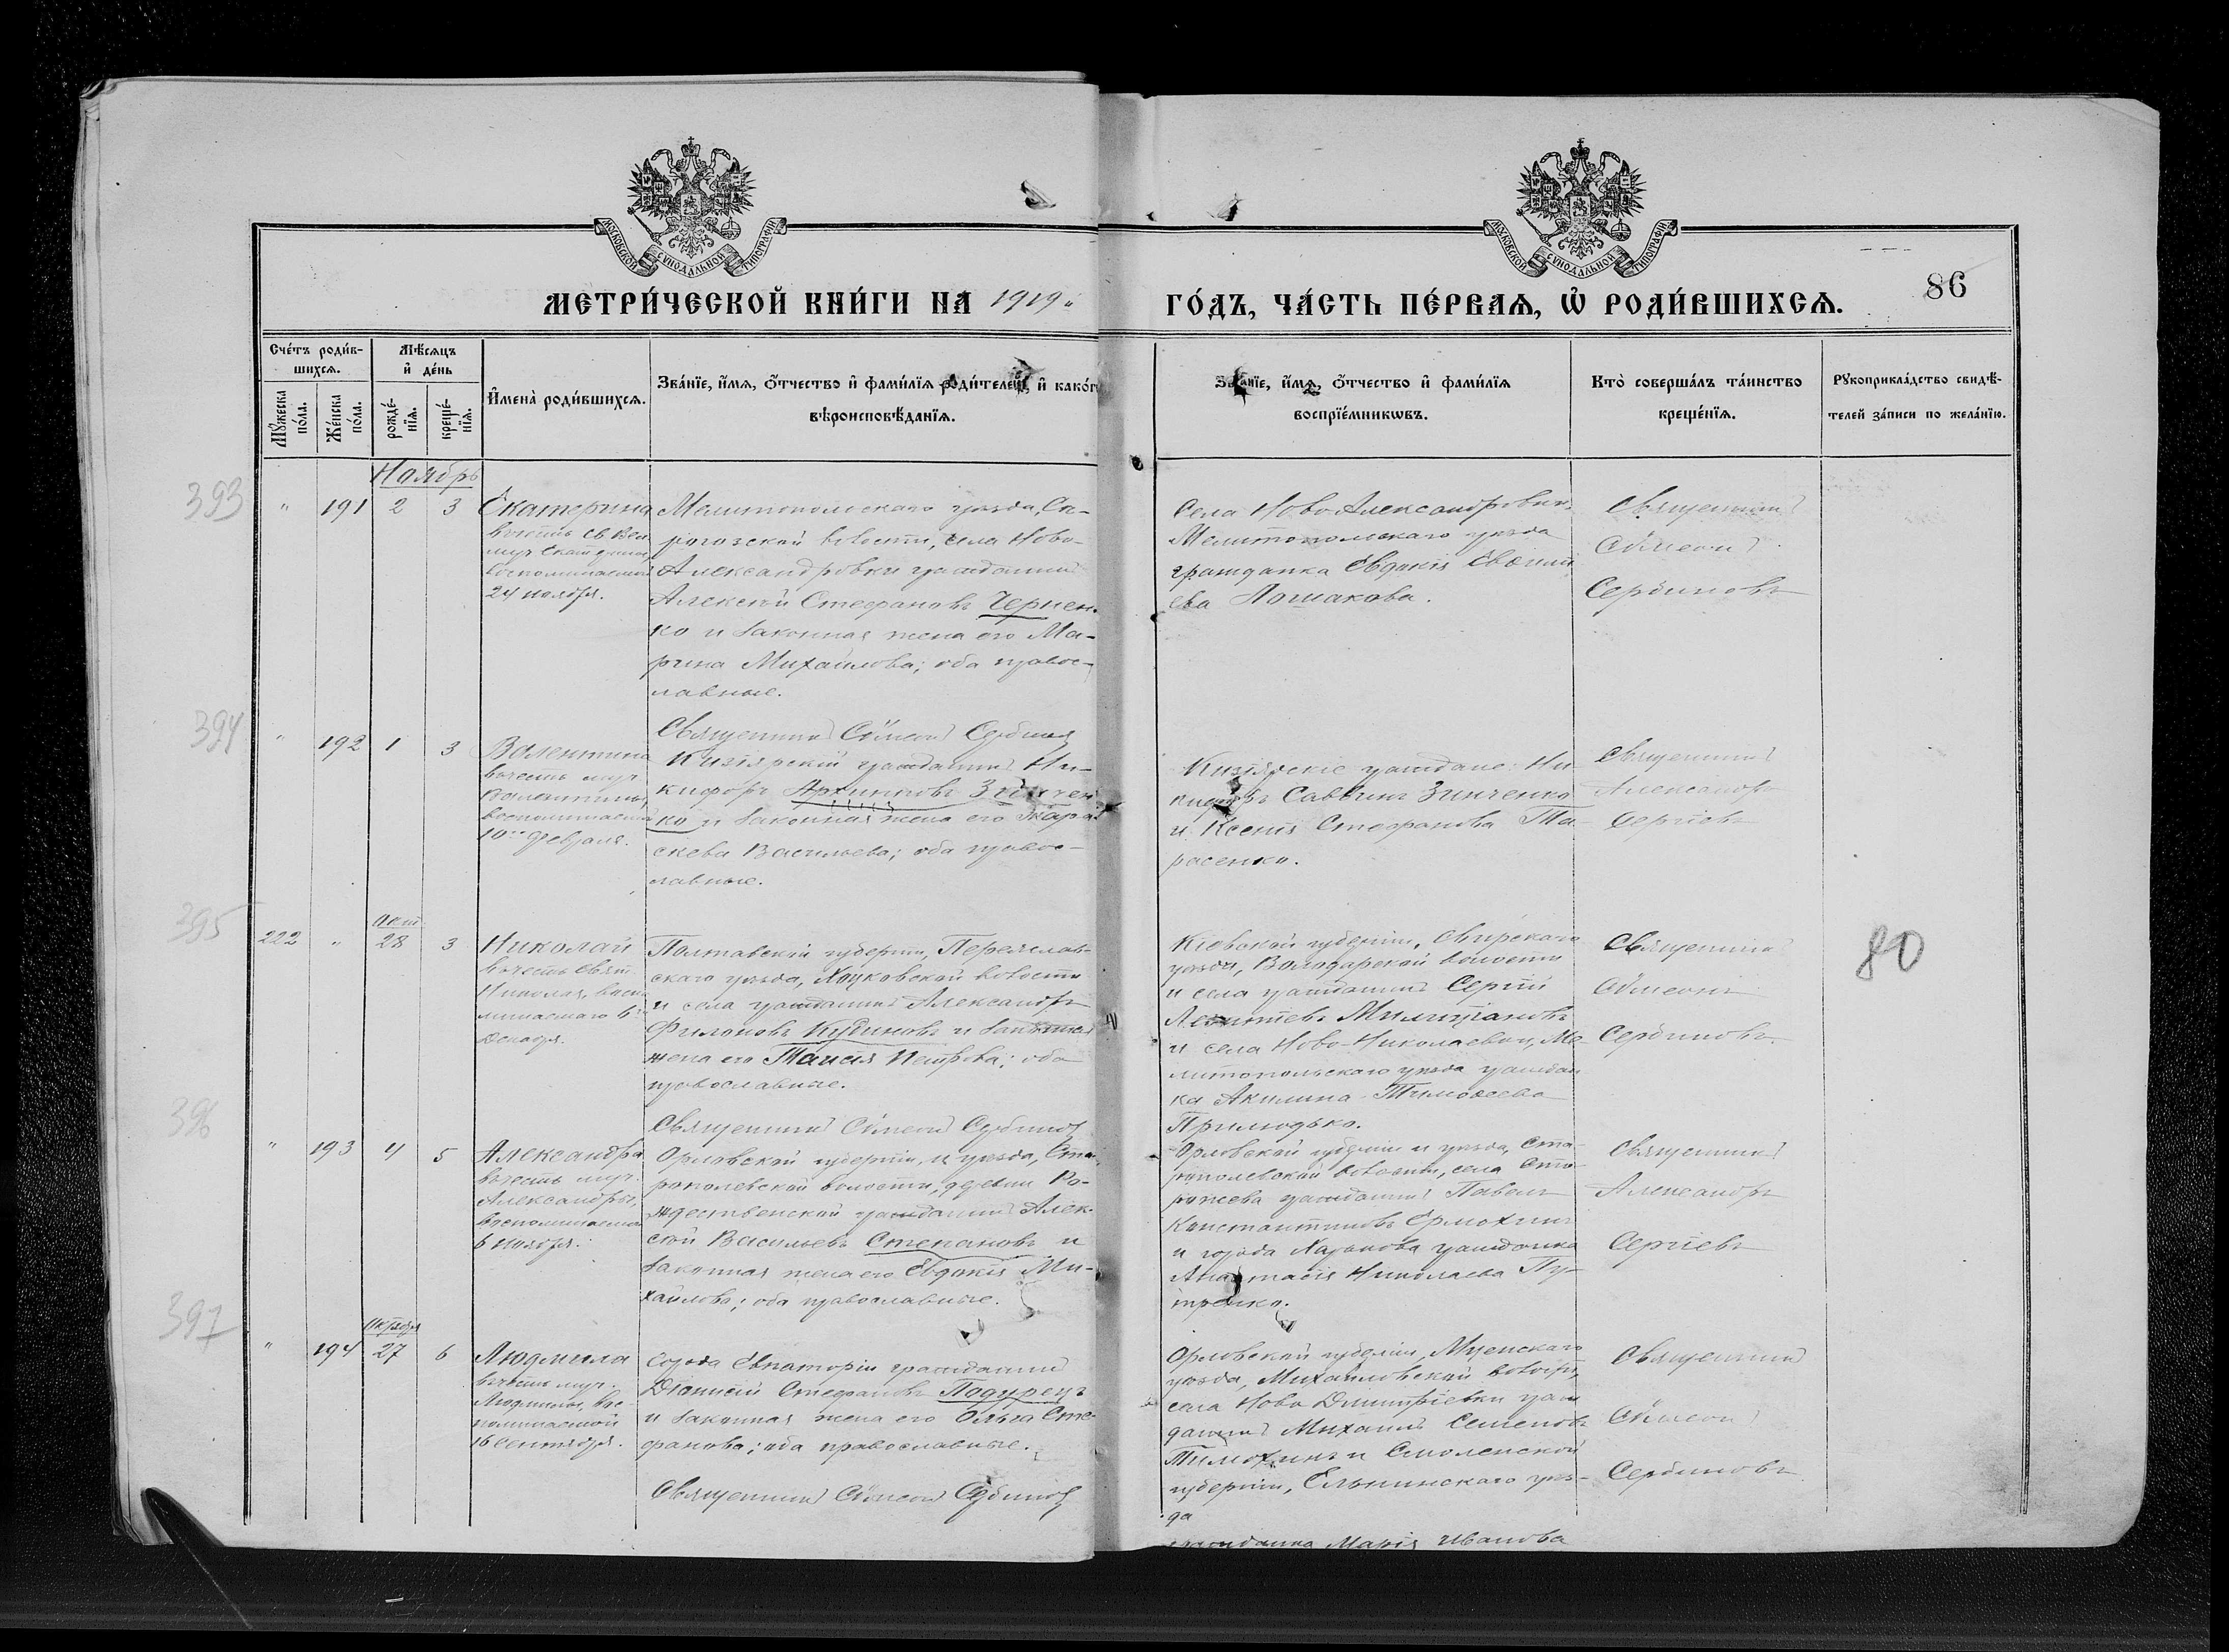 МОСКОВСКОЙ СѴНОДАЛЬНОЙ ТИПОГРАФІИ
МОСКОВСКОЙ СѴНОДАЛЬНОЙ ТИПОГРАФІИ
МЕТРИ́ЧЕСКОЙ КНИ́ГИ НА 1919 ГО́ДЪ, ЧА́СТЬ ПЕ́РВАѦ, Ѡ҆ РОДИ́ВШИХСѦ.
86
Сче́тъ роди́в-
шихсѧ.
Мѣ́сѧцъ
и҆ де́нь
Мꙋ́жеска
по́ла.
Же́нска
по́ла.
рожде́-
нїѧ.
креще́-
нїѧ.
И҆мена̀ роди́вшихсѧ.
Зва́нїе, и҆́мѧ, ѻ҆́тчество и҆ фами́лїѧ роди́телей, и҆ како́г
вѣроисповѣ́данїѧ.
Зва́нїе, и҆́мѧ, ѻ҆́тчество и҆ фами́лїѧ
воспрїе́мникѡвъ.
Кто̀ соверша́лъ та́инство
креще́нїѧ.
Рꙋкоприкла́дство свидѣ́-
телей за́писи по жела́нїю.
Ноябрь
393
" 191 2 3
Екатерина
въ честь Св. Вел.
муч. Екатерины,
воспоминаемой
24 ноября.
Мелитопольскаго уѣзда, Се-
рогозской волости, села Ново-
Александровки гражданинъ
Алексѣй Стефановъ Чернен-
ко и законная жена его Ма-
рина Михайлова; оба правос-
лавные.
Священникъ Сѵмеонъ Сербиновъ
Села Ново Александровки,
Мелитопольскаго уѣзда
гражданка Евдокія
ева Лошакова.
Священникъ
Сѵмеонъ
Сербиновъ
394
" 192 1 3
Валентина
въ честь муч.
Валентины,
воспоминаемой
10го февраля.
Кизіярскій гражданинъ Ни-
кифоръ Архиповъ Зинчен
ко и законная жена его Пара-
скева Васильева; оба правос-
лавные.
Кизіярскіе граждане: Ни-
кифоръ Саввинъ Зинченко
и Ксенія Стефанова Та-
расенко.
Священникъ
Александръ
Сергіевъ
395
Окт.
222 " 28 3
Николай
въ честь Свят.
Николая, воспо-
минаемаго 6
декабря.
Полтавской губерніи, Переяслав-
скаго уѣзда, Хоцковской волости
и села гражданинъ Александръ
Филоновъ Кудиновъ и законная
жена его Таисія Петрова; оба
православные.
Священникъ Сѵмеонъ Сербиновъ
Кіевской губерніи, Сквирскаго
уѣзда, Володарской волости
и села гражданинъ Сергій
Леонтіевъ
и села Ново-Николаевки, Ме-
литопольскаго уѣзда граждан
ка Акилина Тимоѳеева
Прилюдько.
Священникъ
Сѵмеонъ
Сербиновъ.
80
396
" 193 4 5
Александра
въ честь муч.
Александры,
воспоминаемой
6 ноября.
Орловской губерніи, и уѣзда, Ста-
рополевской волости, деревни Ро-
ждественской гражданинъ Алек-
сѣй Васильевъ Степановъ и
законная жена его Евдокія Ми-
хайлова; оба православные.
Орловской губерніи и уѣзда, Ста-
рополевской волости, села Сто-
рожева гражданинъ Павелъ
Константиновъ Ермохинъ
и города Харькова гражданка
Анастасія Николаева Пу-
тренко.
Священникъ
Александръ
Сергіевъ
397
Октября
" 194 27 6
Людмила
въ честь муч.
Людмилы, вос-
поминаемой
16 сентября.
города Евпаторіи гражданинъ
Діонисій Стефановъ Подурецъ
и законная жена его Ольга Сте-
фанова; оба православные.
Священникъ Сѵмеонъ Сербиновъ
Орловской губерніи, Мценскаго
уѣзда, Михайловской волости,
села Ново Димитріевки граж
данинъ Михаилъ Семеновъ
Тимохинъ и Смоленской
губерніи, Ельнинскаго уѣз-
да
гражданка Марія Иванова
Священникъ
Сѵмеонъ
Сербиновъ